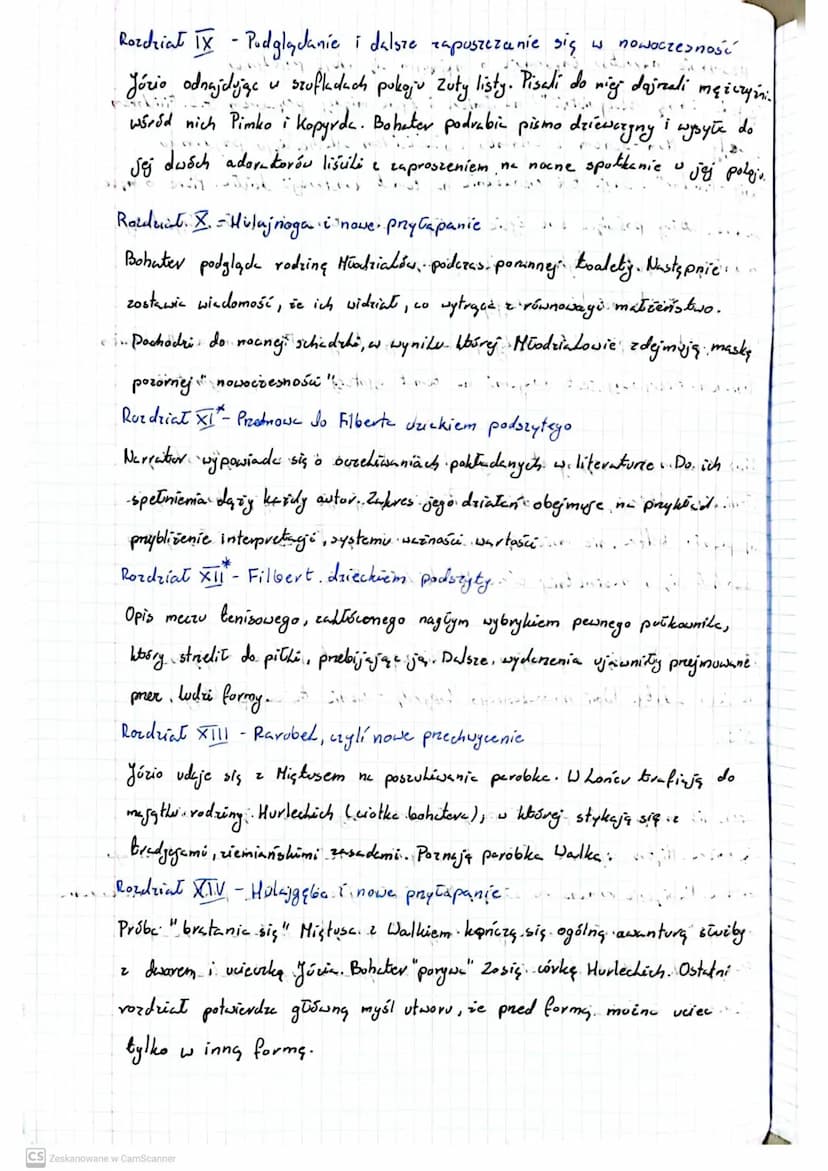 Rozdział IX - Podglądanie i dalsze zapuszczanie się w nowoczesność
Józio odnajduje w szufladach pokoju Zuty listy. Pisali do niej dojrzali mężczyźni.
wśród nich Pimko i Kopyrda. Bohater podrabia pismo dziewczyny i wysyła do
jej dwóch adoratorów liściki z zaproszeniem na nocne spotkanie w jej pokoju.
Rozdział X - Hulajnoga i nowe przyłapanie
Bohater podgląda rodzinę Młodziaków podczas porannej toalety. Następnie
zostawia wiadomość, że ich widział, co wytrąca z równowagi małżeństwo.
Dochodzi do nocnej schadzki, w wyniku której Młodziakowie zdejmują maskę
pozornej "nowoczesności"
Rozdział XI* - Przedmowa do Filberta dzieckiem podszytego
Narrator wypowiada się o oczekiwaniach pokładanych w literaturze. Do ich
spełnienia dąży każdy autor. Zakres jego działań obejmuje na przykład
przybliżenie interpretacji, systemu ważności wartości
Rozdział XII* - Filbert dzieckiem podszyty
Opis meczu tenisowego, zakłóconego nagłym wybrykiem pewnego pułkownika,
który strzelił do piłki, przebijając ją. Dalsze wydarzenia ujawniły przejmowane
przez ludzi formy.
Rozdział XIII - Parobek, czyli nowe przechwycenie
Józio udaje się z Miętusem na poszukiwanie parobka. W końcu trafiają do
majątku rodziny Hurleckich (ciotka bohatera), w której stykają się z
tradycjami, ziemiańskimi zasadami. Poznają parobka Walka.
Rozdział XIV - Hulajgęba i nowe przyłapanie
Próba "bratania się" Miętusa z Walkiem kończą się ogólną awanturą służby
z dworem i ucieczką Józia. Bohater "porywa" Zosię córkę Hurleckich. Ostatni
rozdział potwierdza główną myśl utworu, że przed formą można uciec
tylko w inną formę.
CS Zeskanowane w CamScanner